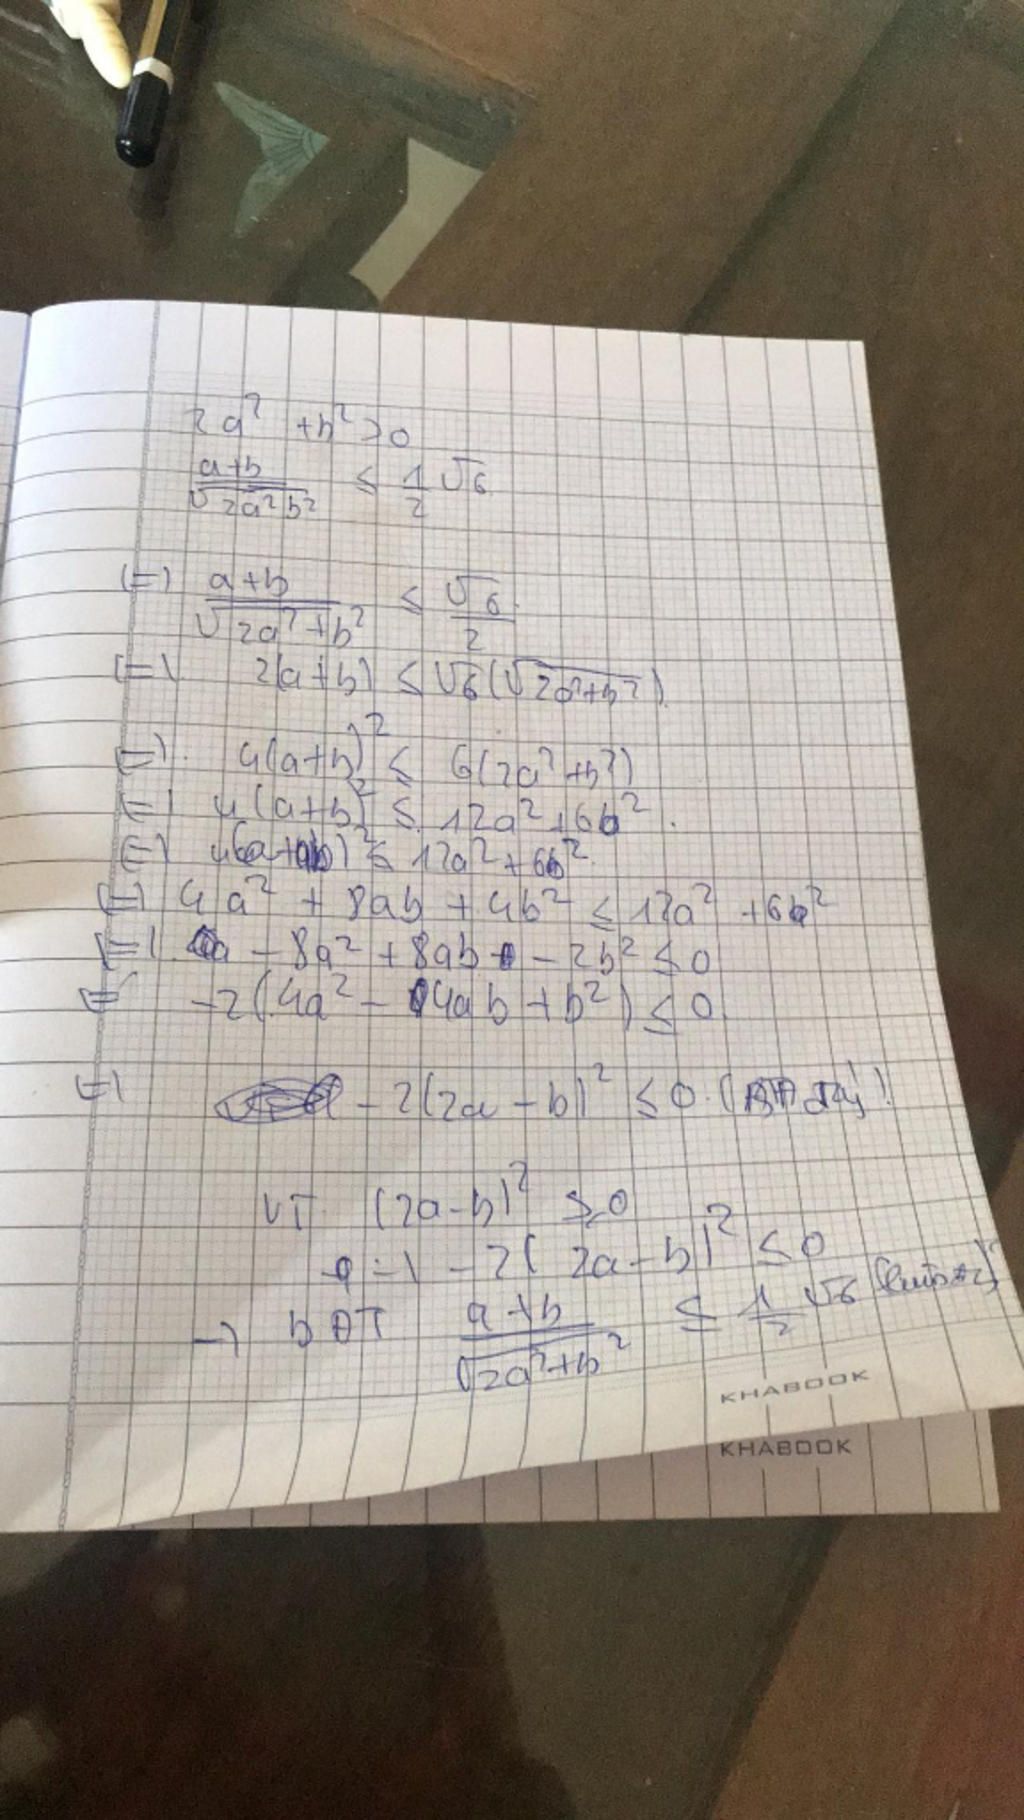 2a² + b² > 0
a+b / √2a²b² ≤ 1/2 √6
(=) a+b / √2a²+b² ≤ √6 / 2
(=) 2(a+b) ≤ √6(√2a²+b²)
(=) 4(a+b)² ≤ 6(2a²+b²)
(=) 4(a+b)² ≤ 12a²+6b².
(=) ² ≤ 12a²+6b².
(=) 4a² + 8ab + 4b² ≤ 12a² + 6b²
(=) - 8a² + 8ab - 2b² ≤ 0
(=) -2(4a² - 4ab + b²) ≤ 0
(=) -2(2a - b)² ≤ 0
VT (2a-b)² ≥ 0
=) -2(2a-b)² ≤ 0
→ BĐT a+b / √2a²+b² ≤ 1/2 √6
KHABOOK
KHABOOK